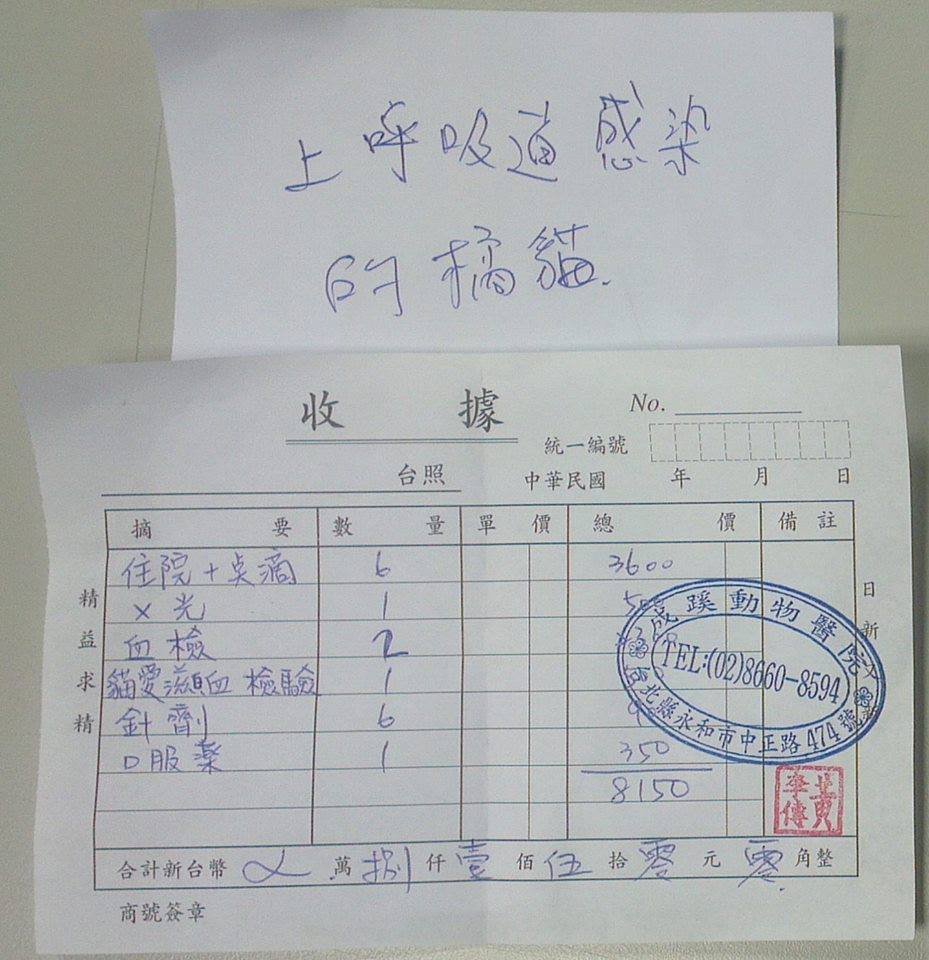 上呼吸道感染
的橘貓.
收據
No.
統一編號
台照 中華民國 年 月 日
摘要 數量 單價 總價 備註
住院+点滴 6 3600
X光 1
血檢 2
貓愛滋血檢驗 1
針劑 6
口服藥 1 350
8150
合計新台幣 萬捌仟壹佰伍拾零元零角整
商號簽章
精益求精
日新
成蹊動物醫院
TEL:(02)8660-8594
台北縣永和市中正路474號
黃李傳